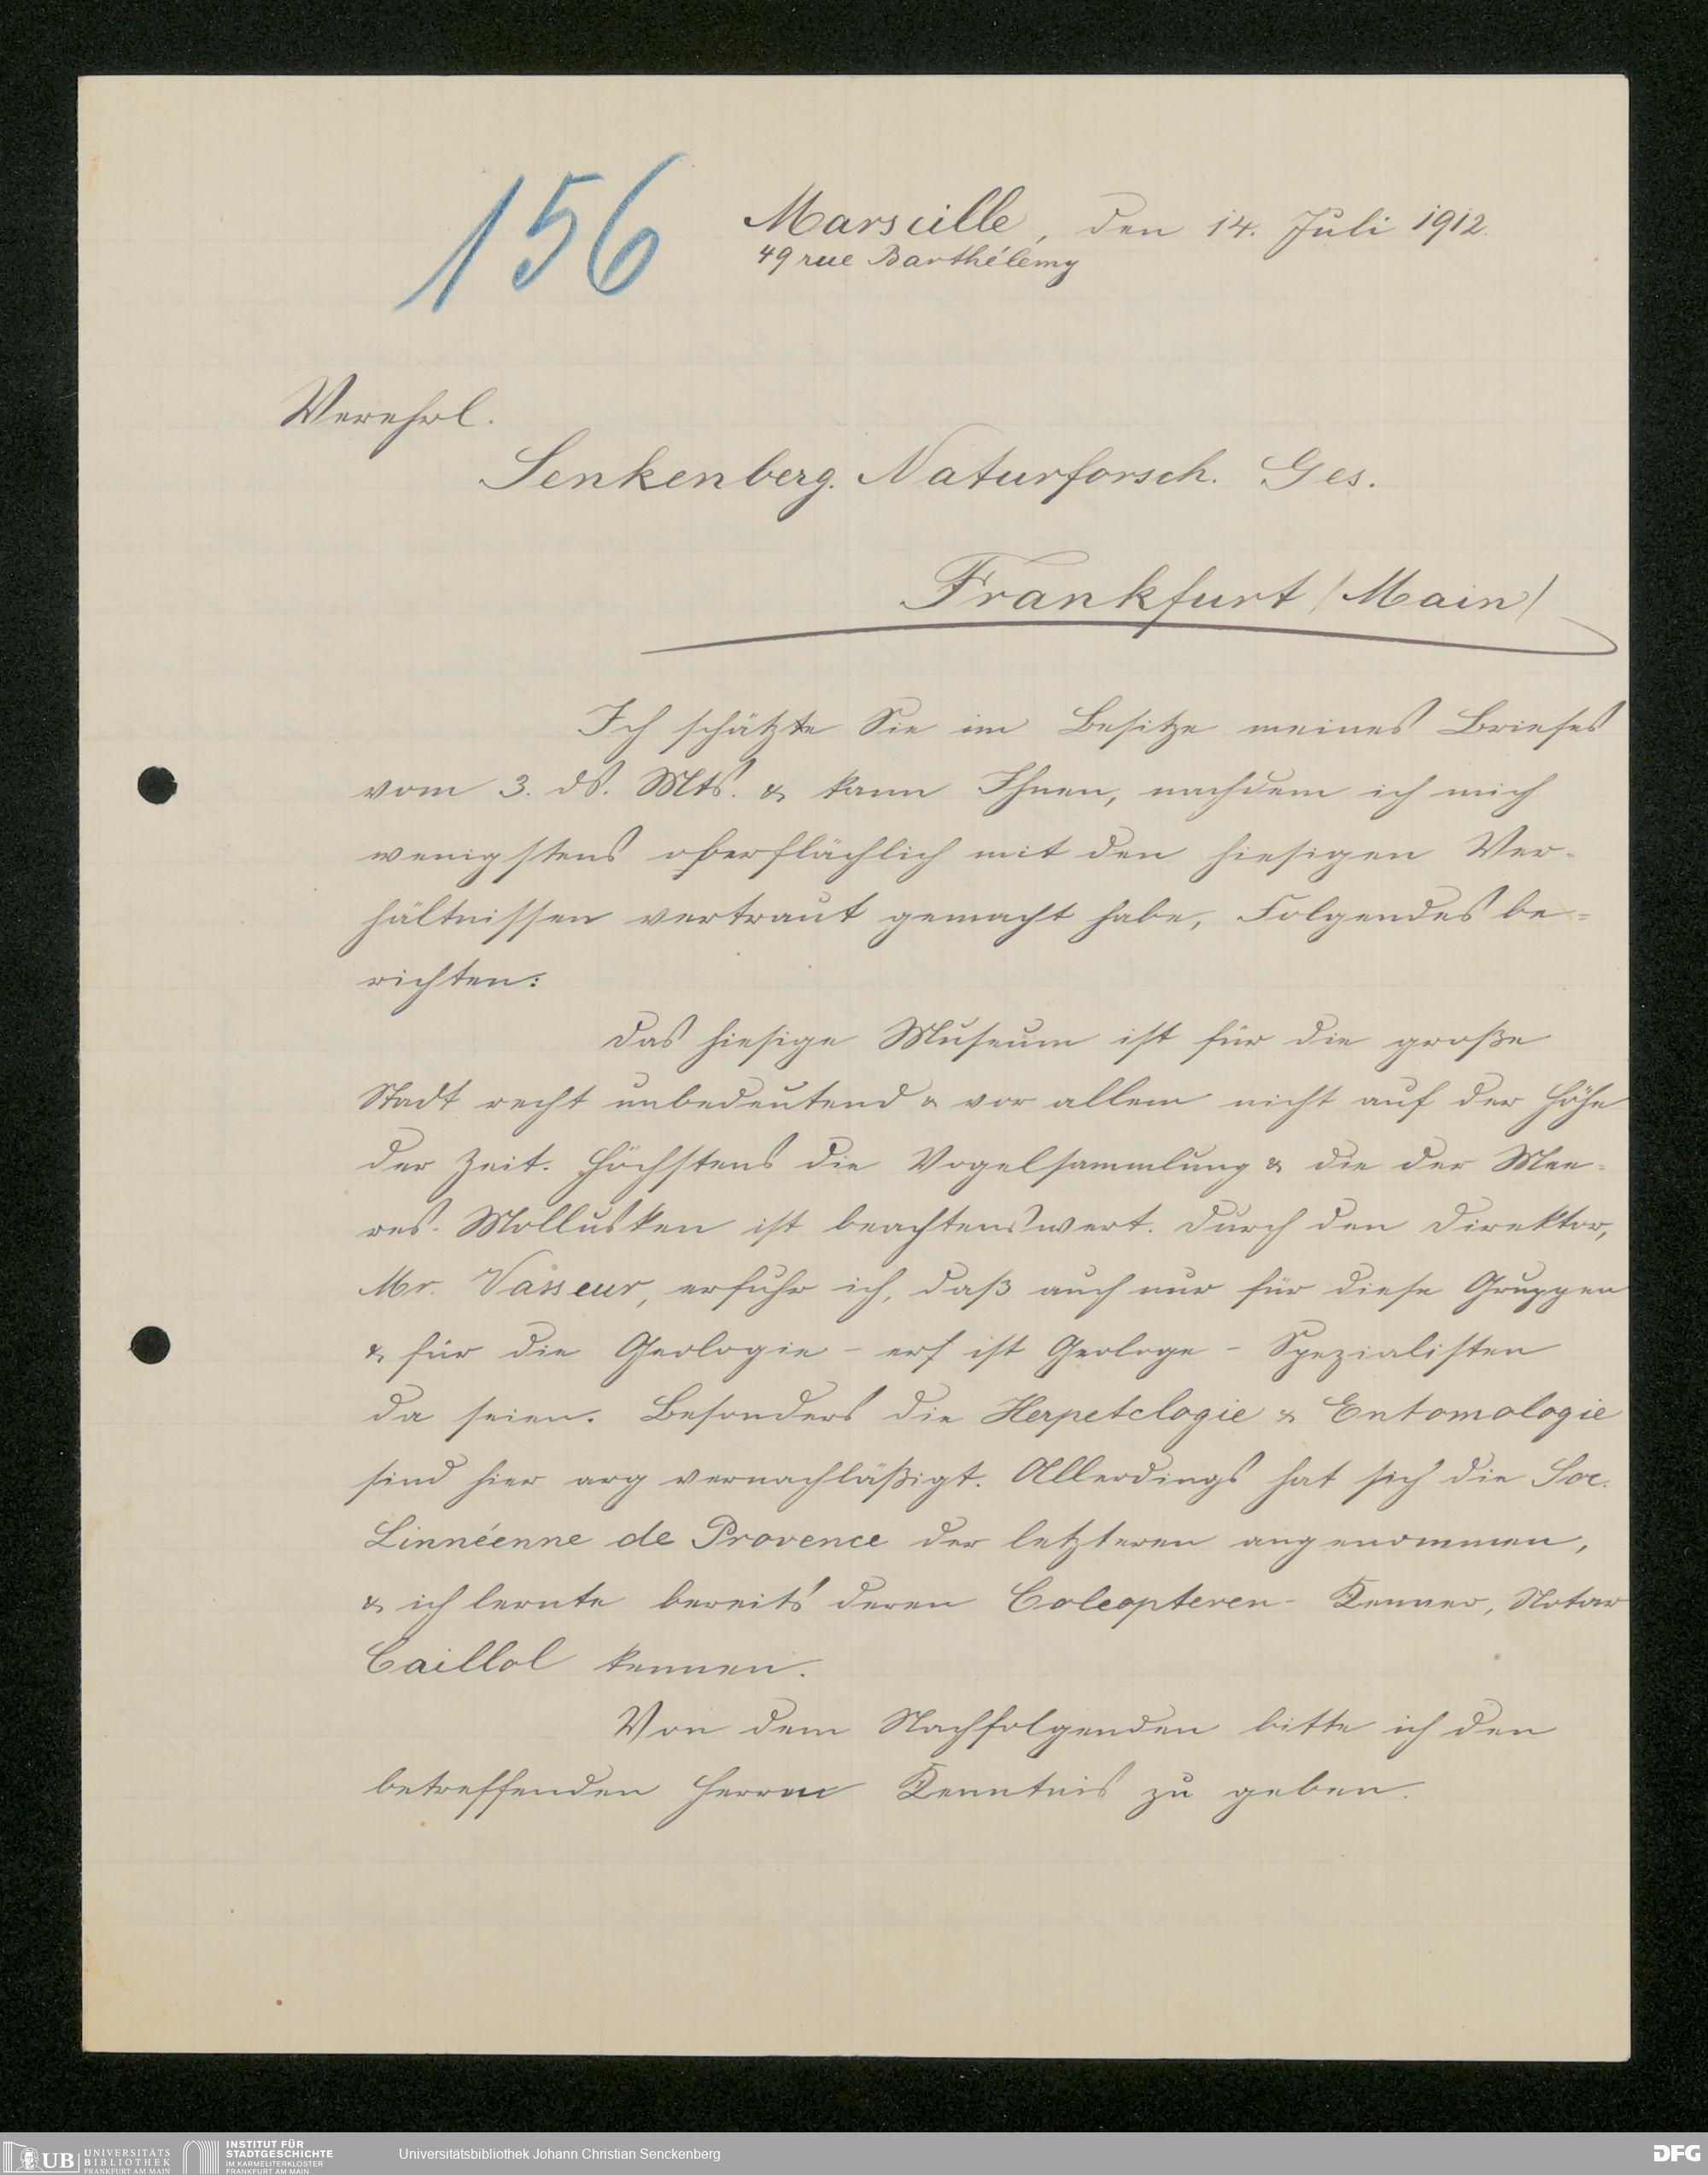 156
Marseille, den 14. Juli 1912.
49 rue Barthélémy
Verehrl.
Senkenberg. Naturforsch. Ges.
Frankfurt (Main)
Ich schätzte Sie im Besitze meines Briefes
vom 3. ds. Mts. & kann Ihnen, nachdem ich mich
wenigstens oberflächlich mit den hiesigen Ver-
hältnissen vertraut gemacht habe, Folgendes be-
richten:
Das hiesige Museum ist für die große
Stadt recht unbedeutend & vor allem nicht auf der Höhe
der Zeit. Höchstens die Vogelsammlung & die der Mee-
res-Mollusken ist beachtenswert. Durch den Direktor,
Mr. Vasseur, erfuhr ich, daß auch nur für diese Gruppen
& für die Geologie - ist Geologe - Spezialisten
da seien. Besonders die Herpetologie & Entomologie
sind hier arg vernachläßigt. Allerdings hat sich die Soc.
Linnéenne de Provence der letzteren angenommen,
& ich lernte bereits deren Coleopteren-Kenner, Notar
Caillol kennen.
Von dem Nachfolgenden bitte ich den
betreffenden Herren Kenntnis zu geben.
UB UNIVERSITÄTS
BIBLIOTHEK
FRANKFURT AM MAIN
INSTITUT FÜR
STADTGESCHICHTE
IM KARMELITERKLOSTER
FRANKFURT AM MAIN
Universitätsbibliothek Johann Christian Senckenberg
DFG